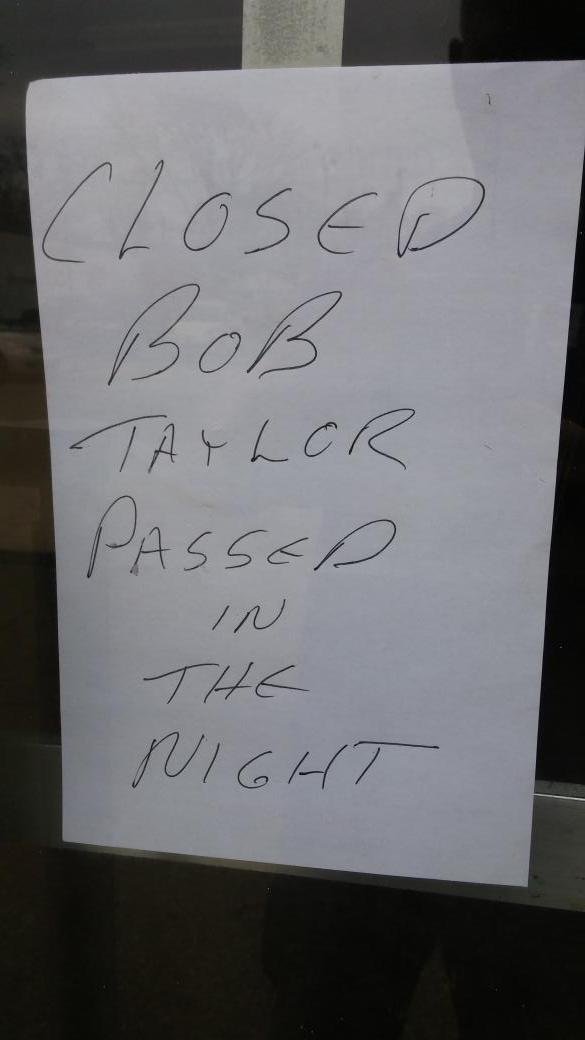 CLOSED
BOB
TAYLOR
PASSED
IN
THE
NIGHT